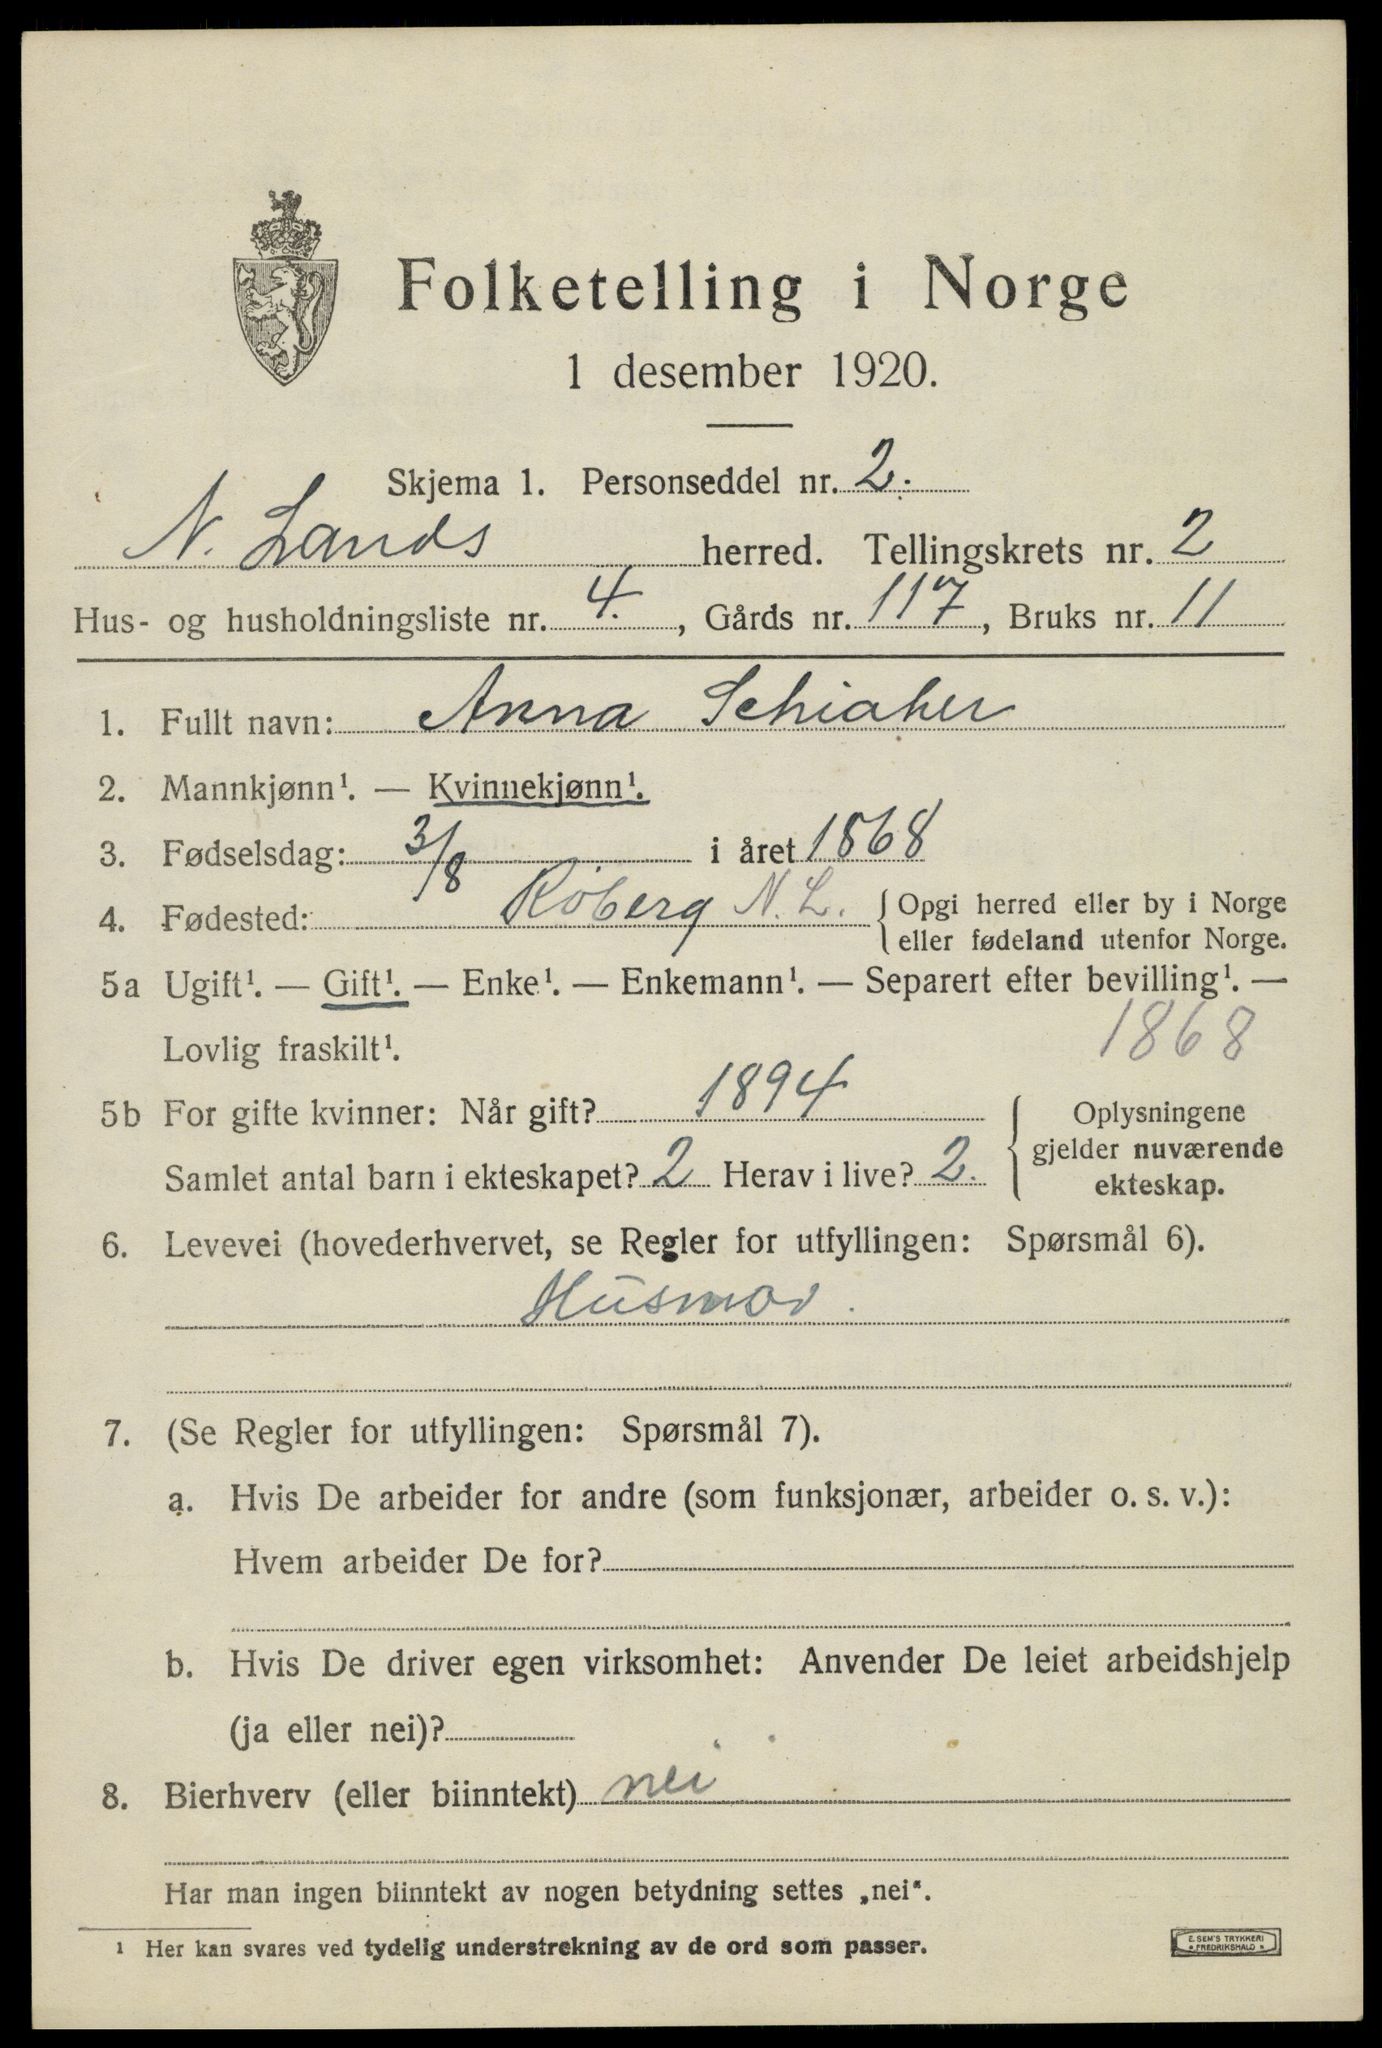 Folketelling i Norge
1 desember 1920.
Skjema 1. Personseddel nr. 2.
N. Lands herred. Tellingskrets nr. 2
Hus- og husholdningsliste nr. 4. , Gårds nr. 117 , Bruks nr. 11
1. Fullt navn: Anna Schiaker
2. Mannkjønn¹. — Kvinnekjønn¹.
3. Fødselsdag: 3/8 i året 1868
4. Fødested: Røberg N. L. { Opgi herred eller by i Norge
eller fødeland utenfor Norge.
5a Ugift¹. — Gift¹. — Enke¹. — Enkemann¹. — Separert efter bevilling¹. —
Lovlig fraskilt¹. 1868
5b For gifte kvinner: Når gift? 1894 { Oplysningene
gjelder nuværende
Samlet antal barn i ekteskapet? 2 Herav i live? 2. ekteskap.
6. Levevei (hovederhvervet, se Regler for utfyllingen: Spørsmål 6).
Husmor.
7. (Se Regler for utfyllingen: Spørsmål 7).
a. Hvis De arbeider for andre (som funksjonær, arbeider o. s. v.):
Hvem arbeider De for?
b. Hvis De driver egen virksomhet: Anvender De leiet arbeidshjelp
(ja eller nei)?
8. Bierhverv (eller biinntekt) nei
Har man ingen biinntekt av nogen betydning settes „nei".
¹ Her kan svares ved tydelig understrekning av de ord som passer.
E. SEM'S TRYKKERI
FREDRIKSHALD